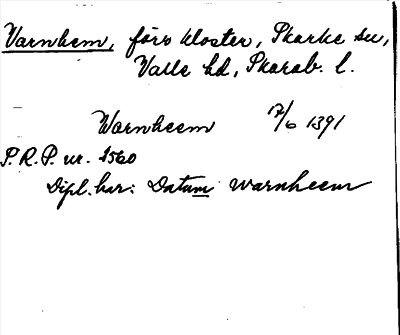 Varnhem, förv kloster, Skarke sn,
Valle hd, Skarab. l.
Warnheem 17/6 1391
S.R.P. nr. 2560
Dipl. har: Datum warnheem